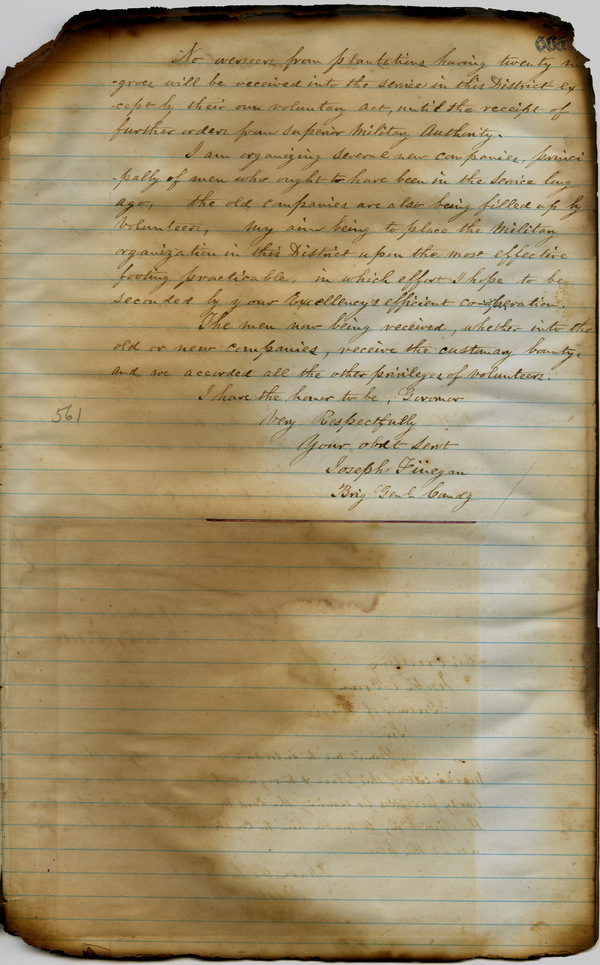 555
No overseers from plantations having twenty n
-groes will be received into the service in this District ex
-cept by their own voluntary act, until the receipt of
further orders from superior Military Authority.
I am organizing several new companies, princi
-pally of men who ought to have been in the service long
ago, the old companies are also being filled up by
Volunteers, my aim being to place the Military
organization in this District upon the most effective
footing practicable, in which effort I hope to be
seconded by your Excellency's efficient co-operation.
The men now being received, whether into the
old or new companies, receive the customary bounty,
and are accorded all the other privileges of volunteers.
I have the honor to be, Governor
561
Very Respectfully
Your obdt Servt
Joseph Finegan
Brig Genl Comdg